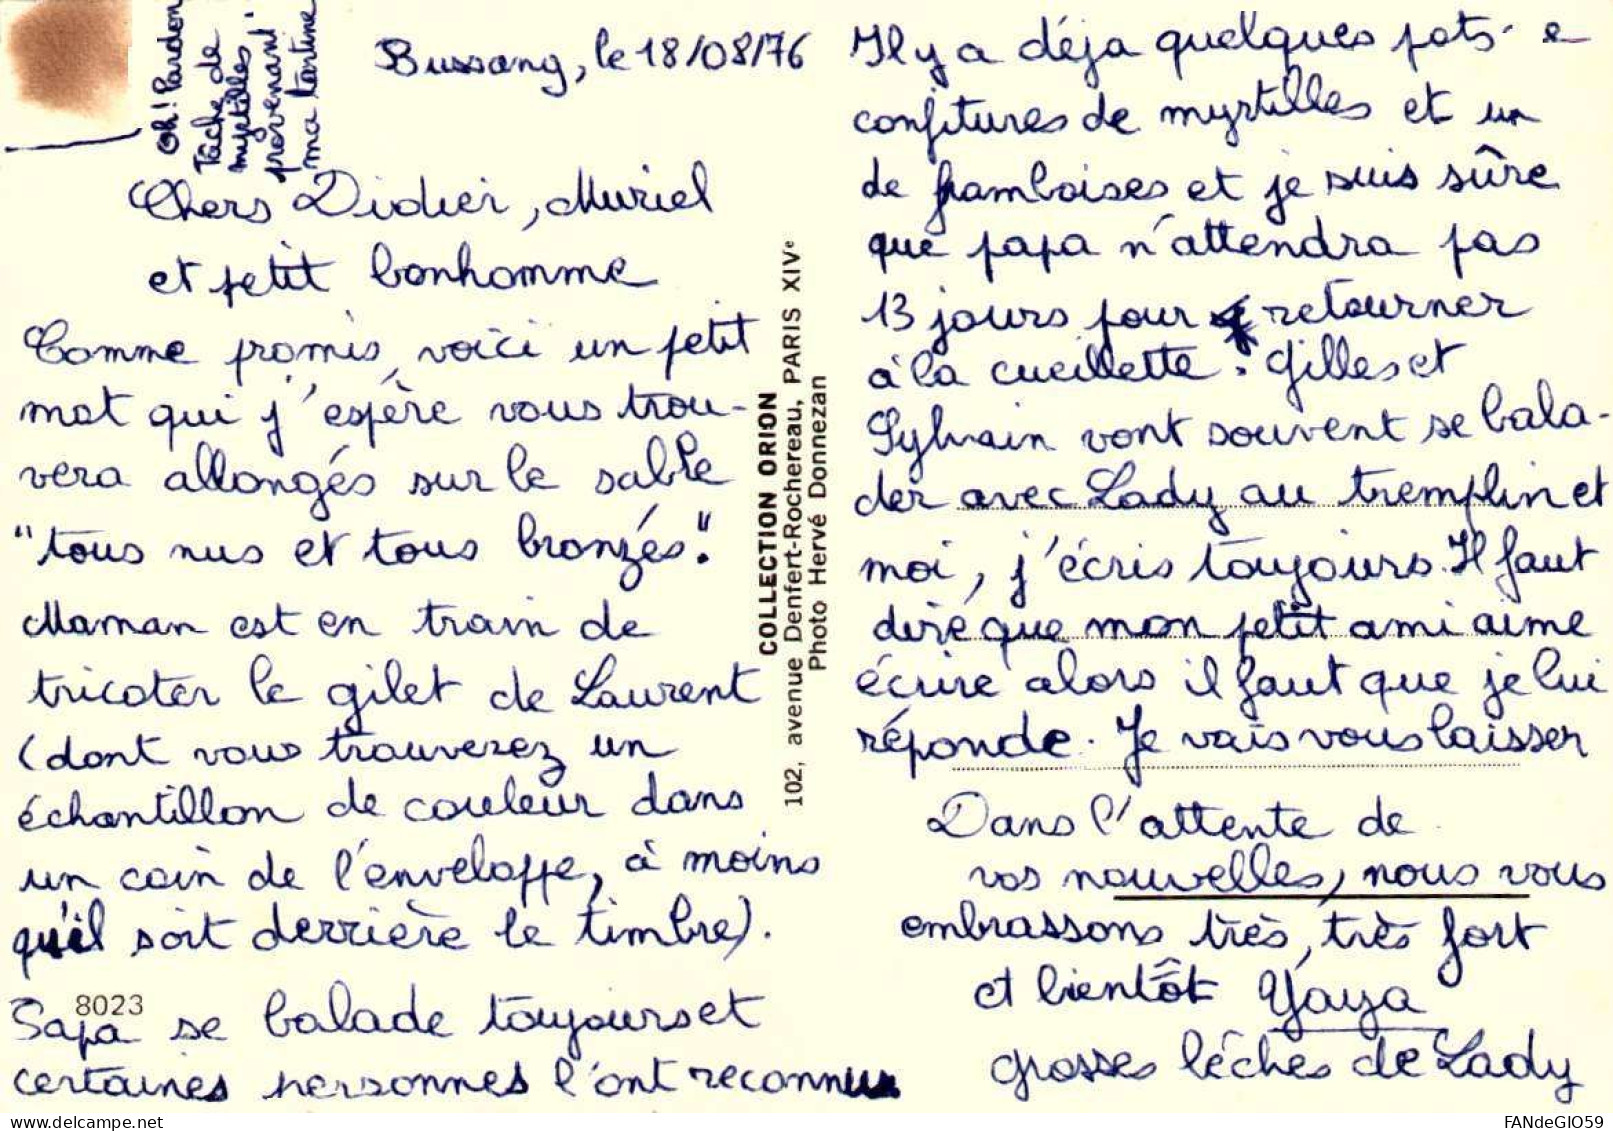 Oh! Pardon
Tache de
myrtilles
provenant
ma tartine
Bussang, le 18/08/76
Chers Didier, Muriel
et petit bonhomme
Comme promis, voici un petit
mot qui j'espère vous trou-
vera allongés sur le sable
"tous nus et tous bronzés".
Maman est en train de
tricoter le gilet de Laurent
(dont vous trouverez un
échantillon de couleur dans
un coin de l'enveloppe, à moins
qu'il soit derrière le timbre).
8023
Papa se balade toujours et
certaines personnes l'ont reconnu
COLLECTION ORION
102, avenue Denfert-Rochereau, PARIS XIVe
Photo Hervé Donnezan
Il y a déja quelques pots
confitures de myrtilles et un
de framboises et je suis sûre
que papa n'attendra pas
13 jours pour retourner
à la cueillette. Gilles et
Sylvain vont souvent se bala-
der avec Lady au tremplin et
moi, j'écris toujours. Il faut
dire que mon petit ami aime
écrire alors il faut que je lui
réponde. Je vais vous laisser
Dans l'attente de
vos nouvelles, nous vous
embrassons très, très fort
et bientôt Yaya
grosses lèches de Lady
FANdeGIO59